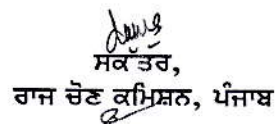 ਸਕੱਤਰ,
ਰਾਜ ਚੋਣ ਕਮਿਸ਼ਨ, ਪੰਜਾਬ